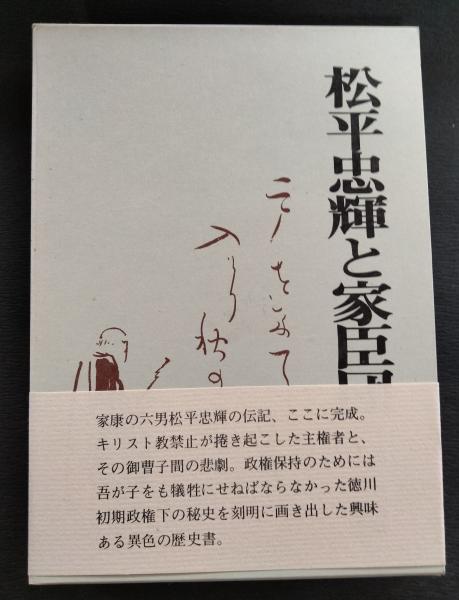 松平忠輝と家臣団
入り
家康の六男松平忠輝の伝記、ここに完成。
キリスト教禁止が捲き起こした主権者と、
その御曹子間の悲劇。政権保持のためには
吾が子をも犠牲にせねばならなかった徳川
初期政権下の秘史を刻明に画き出した興味
ある異色の歴史書。